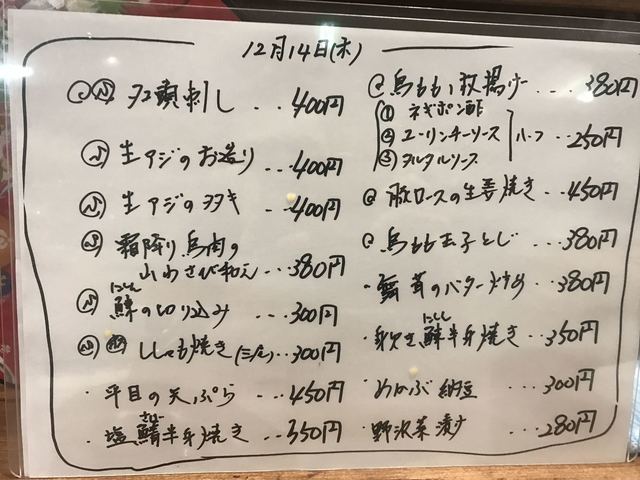 12月14日(木)
生アジのお造り ...400円
生アジのタタキ ...400円
霜降り鳥肉の
山わさび和え ...380円
にしん
鰊の切り込み ...300円
ししゃも焼き(三尾)...300円
・平目の天ぷら ...450円
さば
・塩鯖半身焼き ...350円
鳥もも1枚揚げ ...380円
① ネギポン酢
② ユーリンチーソース ハーフ ...250円
③ タルタルソース
豚ロースの生姜焼き ...450円
鳥もも玉子とじ ...380円
・舞茸のバター炒め ...380円
にしん
・身欠き鰊半身焼き ...350円
・めかぶ納豆 ...300円
・野沢菜漬け ...280円